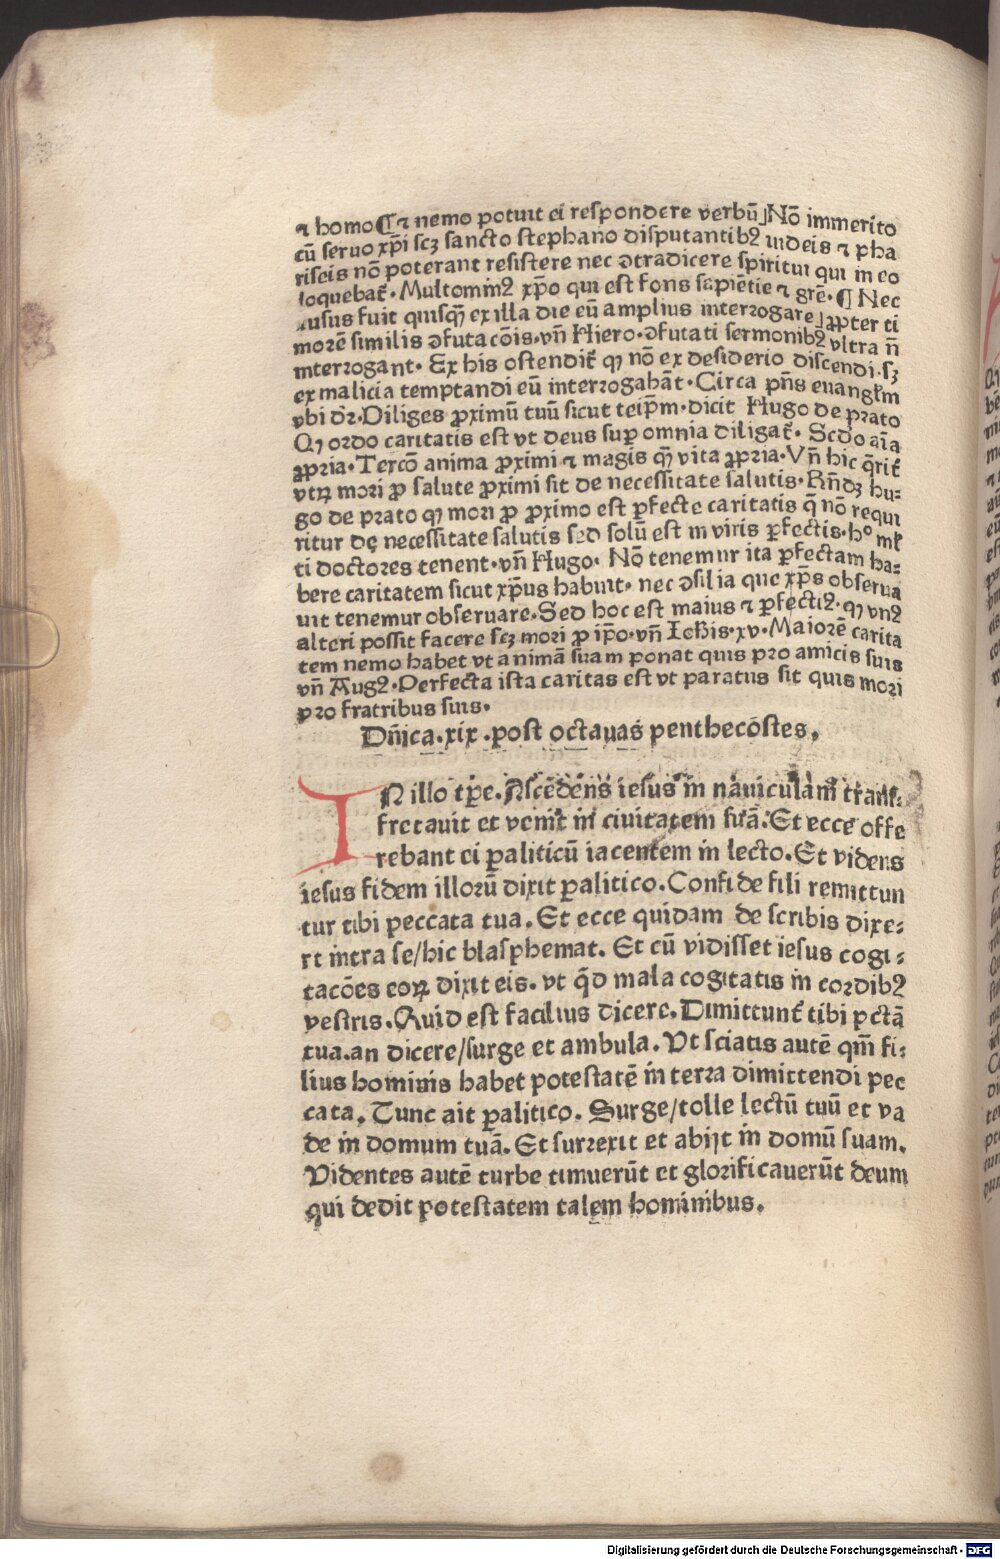 ⁊ homo ¶ ⁊ nemo potuit ei respondere verbū⌋ Nō immerito
cū seruo xp̄i scꝫ sancto stephano disputantibꝰ iudeis ⁊ pha
riseis nō poterant resistere nec ꝯtradicere spiritui qui in eo
loquebat᷑ . Multominꝰ xp̄o qui est fons sapiētie ⁊ grē . ¶ Nec
ausus fuit quisꝙ̄ ex illa die eū amplius interrogare⌋ ꝓpter ti
morē similis ꝯfutacōis . vn̄ Hiero . ꝯfutati sermonibꝰ vltra n̄
interrogant . Ex his ostendit᷑ ꝙ nō ex desiderio discendi . sꝫ
ex malicia temptandi eū interrogabāt . Circa pn̄s euangl̄m
vbi dr̄ . Diliges ꝓximū tuū sicut teip̄m . dicit Hugo de prato
Qꝫ ordo caritatis est vt deus suꝑ omnia diligat᷑ . Scd̄o aīa
ꝓpria . Tercō anima ꝓximi ⁊ magis ꝙ̄ vita ꝓpria . Vn̄ hic q̄rit᷑
vtꝝ mori ꝓ salute ꝓximi sit de necessitate salutis . Rn̄dꝫ hu⸗
go de prato ꝙ mori ꝓ ꝓximo est ꝑfecte caritatis q̄ nō requi
ritur de necessitate salutis sed solū est in viris ꝑfectis . hᵒ ml̄
ti doctores tenent . vn̄ Hugo . Nō tenemur ita ꝑfectam ha⸗
bere caritatem sicut xp̄us habuit . nec ꝯsilia que xp̄s obserua
uit tenemur obseruare . Sed hoc est maius ⁊ ꝑfectiꝰ . ꝙ vnꝰ
alteri possit facere scꝫ mori ꝓ ip̄o . vn̄ Ioh̄is . xv . Maiorē carita
tem nemo habet vt animā suam ponat quis pro amicis suis
vn̄ Augꝰ . Perfecta ista caritas est vt paratus sit quis mori
pro fratribus suis .
Dn̄ica . xix . post octauas penthecōstes .
IN illo tꝑe . Ascēdēns iesus in nauiculam trans⸗
fretauit et venit in ciuitatem suā . Et ecce offe
rebant ei ꝑaliticū iacentem in lecto . Et videns
iesus fidem illorū dixit ꝑalitico . Confide fili remittun
tur tibi peccata tua . Et ecce quidam de scribis dixe⸗
rt intra se/hic blasphemat . Et cū vidisset iesus cogi⸗
tacōes eoꝝ dixit eis . vt q̄d mala cogitatis in cordibꝰ
vestris . Quid est facilius dicere . Dimittunt᷑ tibi pctā
tua . an dicere/surge et ambula . Vt sciatis autē qm̄ fi⸗
lius hominis habet potestatē in terra dimittendi pec
cata . Tunc ait ꝑalitico . Surge/tolle lectū tuū et va
de in domum tuā . Et surrexit et abijt in domū suam .
Videntes autē turbe timuerūt et glorificauerūt deum
qui dedit potestatem talem hominibus .
Digitalisierung gefördert durch die Deutsche Forschungsgemeinschaft - DFG